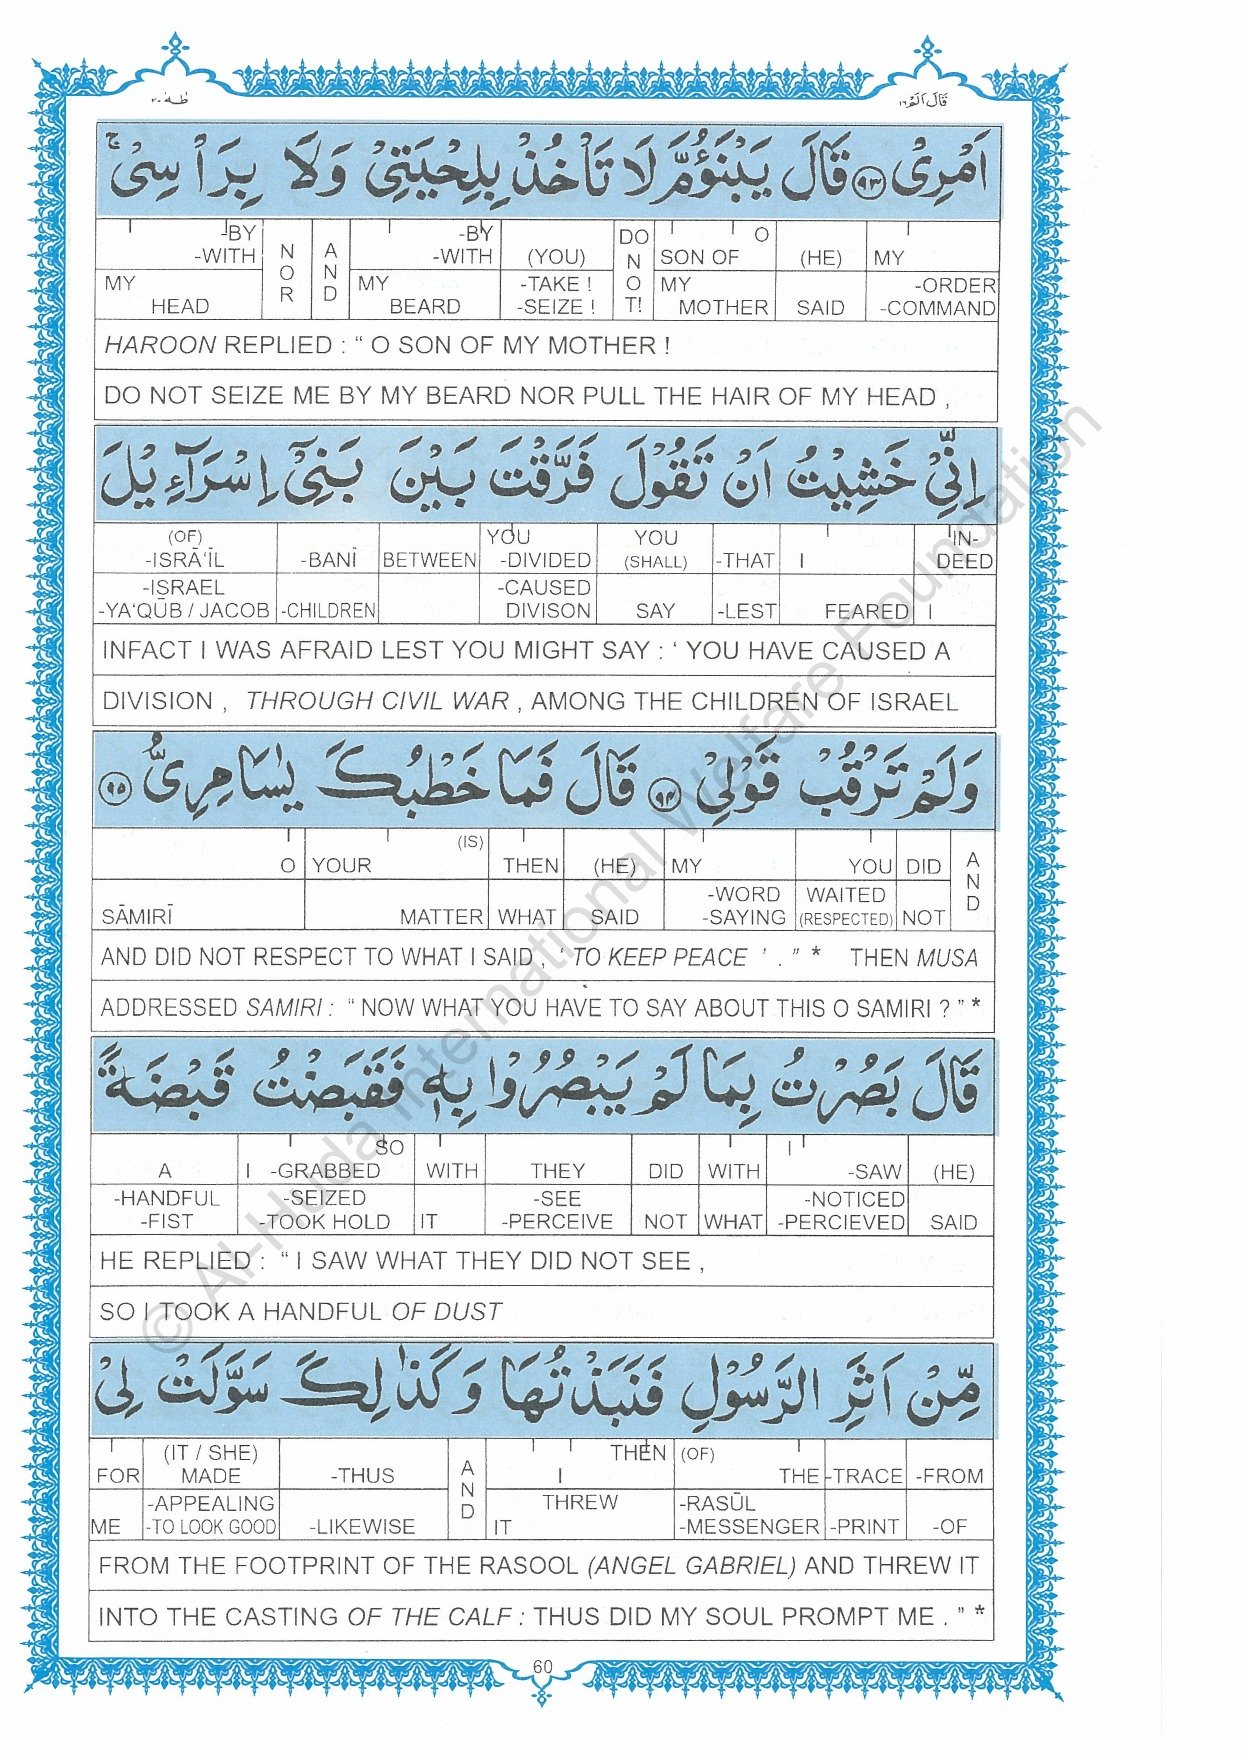 طٰهٰ ٢٠
قَالَ اَلَمْ ١٦
اَمْرِیْ ﴿٩٣﴾ قَالَ یَبْنَؤُمَّ لَا تَاْخُذْ بِلِحْیَتِیْ وَلَا بِرَاْسِیْ ۚ
-BY -BY DO O
-WITH NOR AND -WITH (YOU) NOT! SON OF (HE) MY
MY MY -TAKE ! MY -ORDER
HEAD BEARD -SEIZE ! MOTHER SAID -COMMAND
HAROON REPLIED : “ O SON OF MY MOTHER !
DO NOT SEIZE ME BY MY BEARD NOR PULL THE HAIR OF MY HEAD ,
اِنِّیْ خَشِیْتُ اَنْ تَقُوْلَ فَرَّقْتَ بَیْنَ بَنِیْۤ اِسْرَآءِیْلَ
(OF) YOU YOU IN-
-ISRĀ‘ĪL -BANĪ BETWEEN -DIVIDED (SHALL) -THAT I DEED
-ISRAEL -CAUSED
-YA‘QŪB / JACOB -CHILDREN DIVISON SAY -LEST FEARED I
INFACT I WAS AFRAID LEST YOU MIGHT SAY : ‘ YOU HAVE CAUSED A
DIVISION , THROUGH CIVIL WAR , AMONG THE CHILDREN OF ISRAEL
وَلَمْ تَرْقُبْ قَوْلِیْ ﴿٩٤﴾ قَالَ فَمَا خَطْبُكَ یٰسَامِرِیُّ ﴿٩٥﴾
(IS)
O YOUR THEN (HE) MY YOU DID AND
-WORD WAITED
SĀMIRĪ MATTER WHAT SAID -SAYING (RESPECTED) NOT
AND DID NOT RESPECT TO WHAT I SAID , ‘ TO KEEP PEACE ’ . ” * THEN MUSA
ADDRESSED SAMIRI : “ NOW WHAT YOU HAVE TO SAY ABOUT THIS O SAMIRI ? ” *
قَالَ بَصُرْتُ بِمَا لَمْ یَبْصُرُوْا بِهٖ فَقَبَضْتُ قَبْضَةً
SO I
A I -GRABBED WITH THEY DID WITH -SAW (HE)
-HANDFUL -SEIZED -SEE -NOTICED
-FIST -TOOK HOLD IT -PERCEIVE NOT WHAT -PERCIEVED SAID
HE REPLIED : “ I SAW WHAT THEY DID NOT SEE ,
SO I TOOK A HANDFUL OF DUST
مِّنْ اَثَرِ الرَّسُوْلِ فَنَبَذْتُهَا وَكَذٰلِكَ سَوَّلَتْ لِیْ
(IT / SHE) THEN (OF)
FOR MADE -THUS AND I THE -TRACE -FROM
-APPEALING THREW -RASŪL
ME -TO LOOK GOOD -LIKEWISE IT -MESSENGER -PRINT -OF
FROM THE FOOTPRINT OF THE RASOOL (ANGEL GABRIEL) AND THREW IT
INTO THE CASTING OF THE CALF : THUS DID MY SOUL PROMPT ME . ” *
60
© Al-Huda International Welfare Foundation